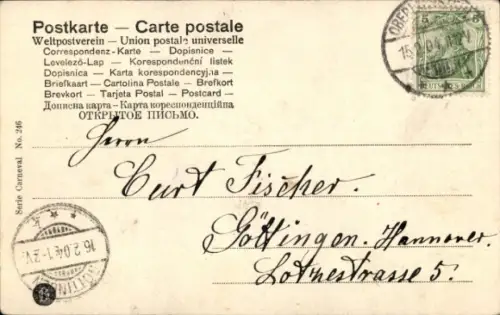 Postkarte — Carte postale
Weltpostverein — Union postale universelle
Correspondenz-Karte — Dopisnice —
Levelező-Lap — Korespondenční lístek
Dopisnica — Karta korespondencyjna —
Briefkaart — Cartolina Postale — Brefkort
Brevkort — Tarjeta Postal — Postcard —
Дописна карта — Карта кореспонденційна
ОТКРЫТОЕ ПИСЬМО.
5 5
Herrn
Curt Fischer.
Göttingen. Hannover.
Lotzestrasse 5.
Serie Carneval No. 246
16.2.04. 1-2 V.